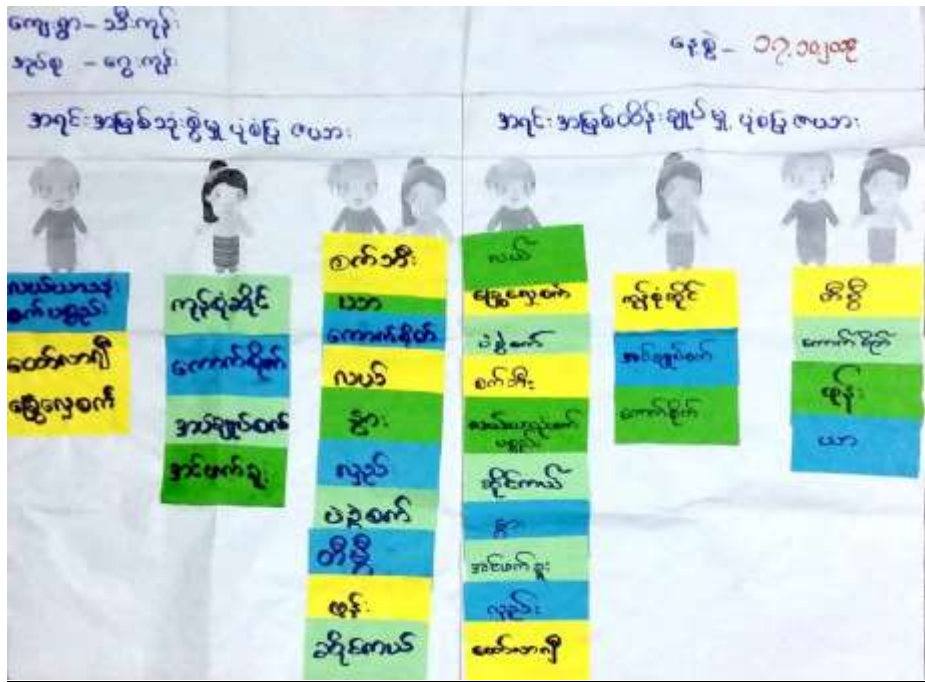 ကျေးရွာ – သီးကုန်း
အုပ်စု – ငွေကုန်း
နေ့စွဲ –
အရင်းအမြစ်သုံးစွဲမှု ပုံစံပြ ဇယား
အရင်းအမြစ်ထိန်းချုပ်မှု ပုံစံပြ ဇယား
လယ်ယာသုံး
စက်ပစ္စည်း
ထော်လာဂျီ
ခြွေလှေ့စက်
ကုန်စုံဆိုင်
ကောက်စိုက်
အပ်ချုပ်စက်
အင်ဖက်ချူး
စက်ဘီး
ယာ
ကောက်စိုက်
လယ်
နွား
လှည်း
ပဲခွဲစက်
တီဗွီ
ဖုန်း
ဆိုင်ကယ်
လယ်
ခြွေလှေ့စက်
ပဲခွဲစက်
စက်ဘီး
လယ်ယာသုံးစက်
ပစ္စည်း
ဆိုင်ကယ်
နွား
အင်ဖက်ချူး
လှည်း
ထော်လာဂျီ
ကုန်စုံဆိုင်
အပ်ချုပ်စက်
ကောက်စိုက်
တီဗွီ
ကောက်စိုက်
ဖုန်း
ယာ